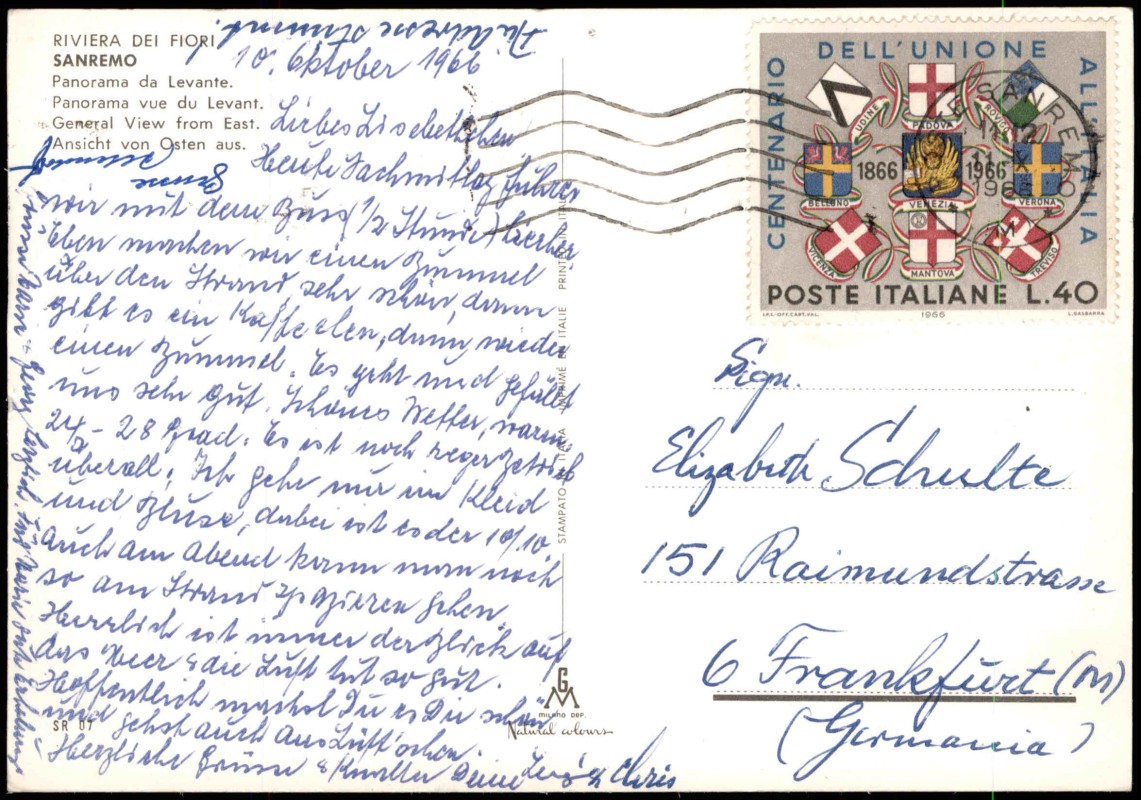 RIVIERA DEI FIORI
SANREMO
Panorama da Levante.
Panorama vue du Levant.
General View from East.
Ansicht von Osten aus.
10. Oktober 1966
Liebes Lisbethchen
Heute Nachmittag fuhren
wir mit dem Bus (1/2 Stunde) hierher
Eben machen wir einen Bummel
über den Strand sehr schön, dann
gibt es ein Kaffeelen, dann wieder
einen Bummel. Es geht und gefällt
uns sehr gut. Schönes Wetter, warm,
24 - 28 Grad. Es ist noch reger Betrieb
überall. Ich gehe nur im Kleid
und Bluse, dabei ist es der 10/10.
Auch am Abend kann man noch
so am Strand spazieren gehen.
Herrlich ist immer der Blick auf
das Meer & die Luft tut so gut.
Hoffentlich machst Du es Dir schön
und gehst auch ans Luft'chen.
Herzliche Grüsse & Deine & Chris
STAMPATO IN ITALIA IMPRIMÉ EN ITALIE PRINTED IN ITALY
SR 07
G M
MILANO DEP.
Natural colours
CENTENARIO DELL'UNIONE ALL'ITALIA
UDINE
PADOVA
ROVIGO
1866
1966
BELLUNO
VENEZIA
VERONA
VICENZA
MANTOVA
TREVISO
POSTE ITALIANE L.40
1966
SANREMO
Sign.
Elizabeth Schulte
151 Raimundstrasse
6 Frankfurt (M)
(Germania)